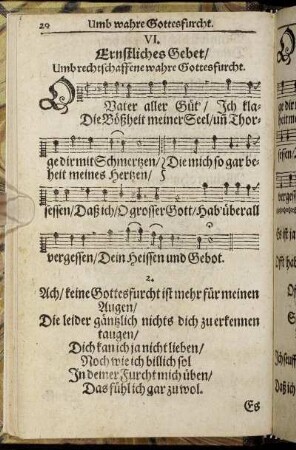 20 Umb wahre Gottesfurcht.
VI.
Ernstliches Gebet/
Umb rechtschaffene wahre Gottesfurcht.
O Vater aller Güt'/ Ich kla-
Die Bößheit meiner Seel/ uñ Thor-
ge dir mit Schmertzen/ Die mich so gar be-
heit meines Hertzen/
sessen/ Daß ich/ O grosser Gott/ Hab' überall
vergessen/ Dein Heissen und Gebot.
2.
Ach/ keine Gottesfurcht ist mehr für meinen
Augen/
Die leider gäntzlich nichts dich zu erkennen
taugen/
Dich kan ich ja nicht lieben/
Noch wie ich billich sol
In deiner Furcht mich üben/
Das fühl ich gar zu wol.
Es